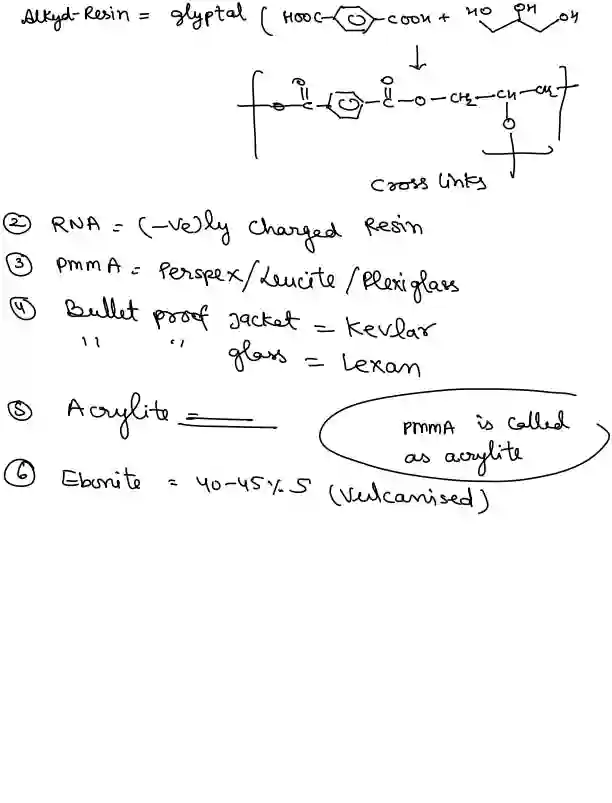 Alkyd-Resin = glyptal ( HOOC- -COOH + HO OH OH
O O
-O-C- -C-O-CH2-CH-CH2
O
Cross links
② RNA = (-ve)ly charged Resin
③ PMMA = Perspex/Leucite/Plexiglass
④ Bullet proof Jacket = Kevlar
" " glass = Lexan
⑤ Acrylite =
PMMA is called
as acrylite
⑥ Ebonite = 40-45% S (Vulcanised)